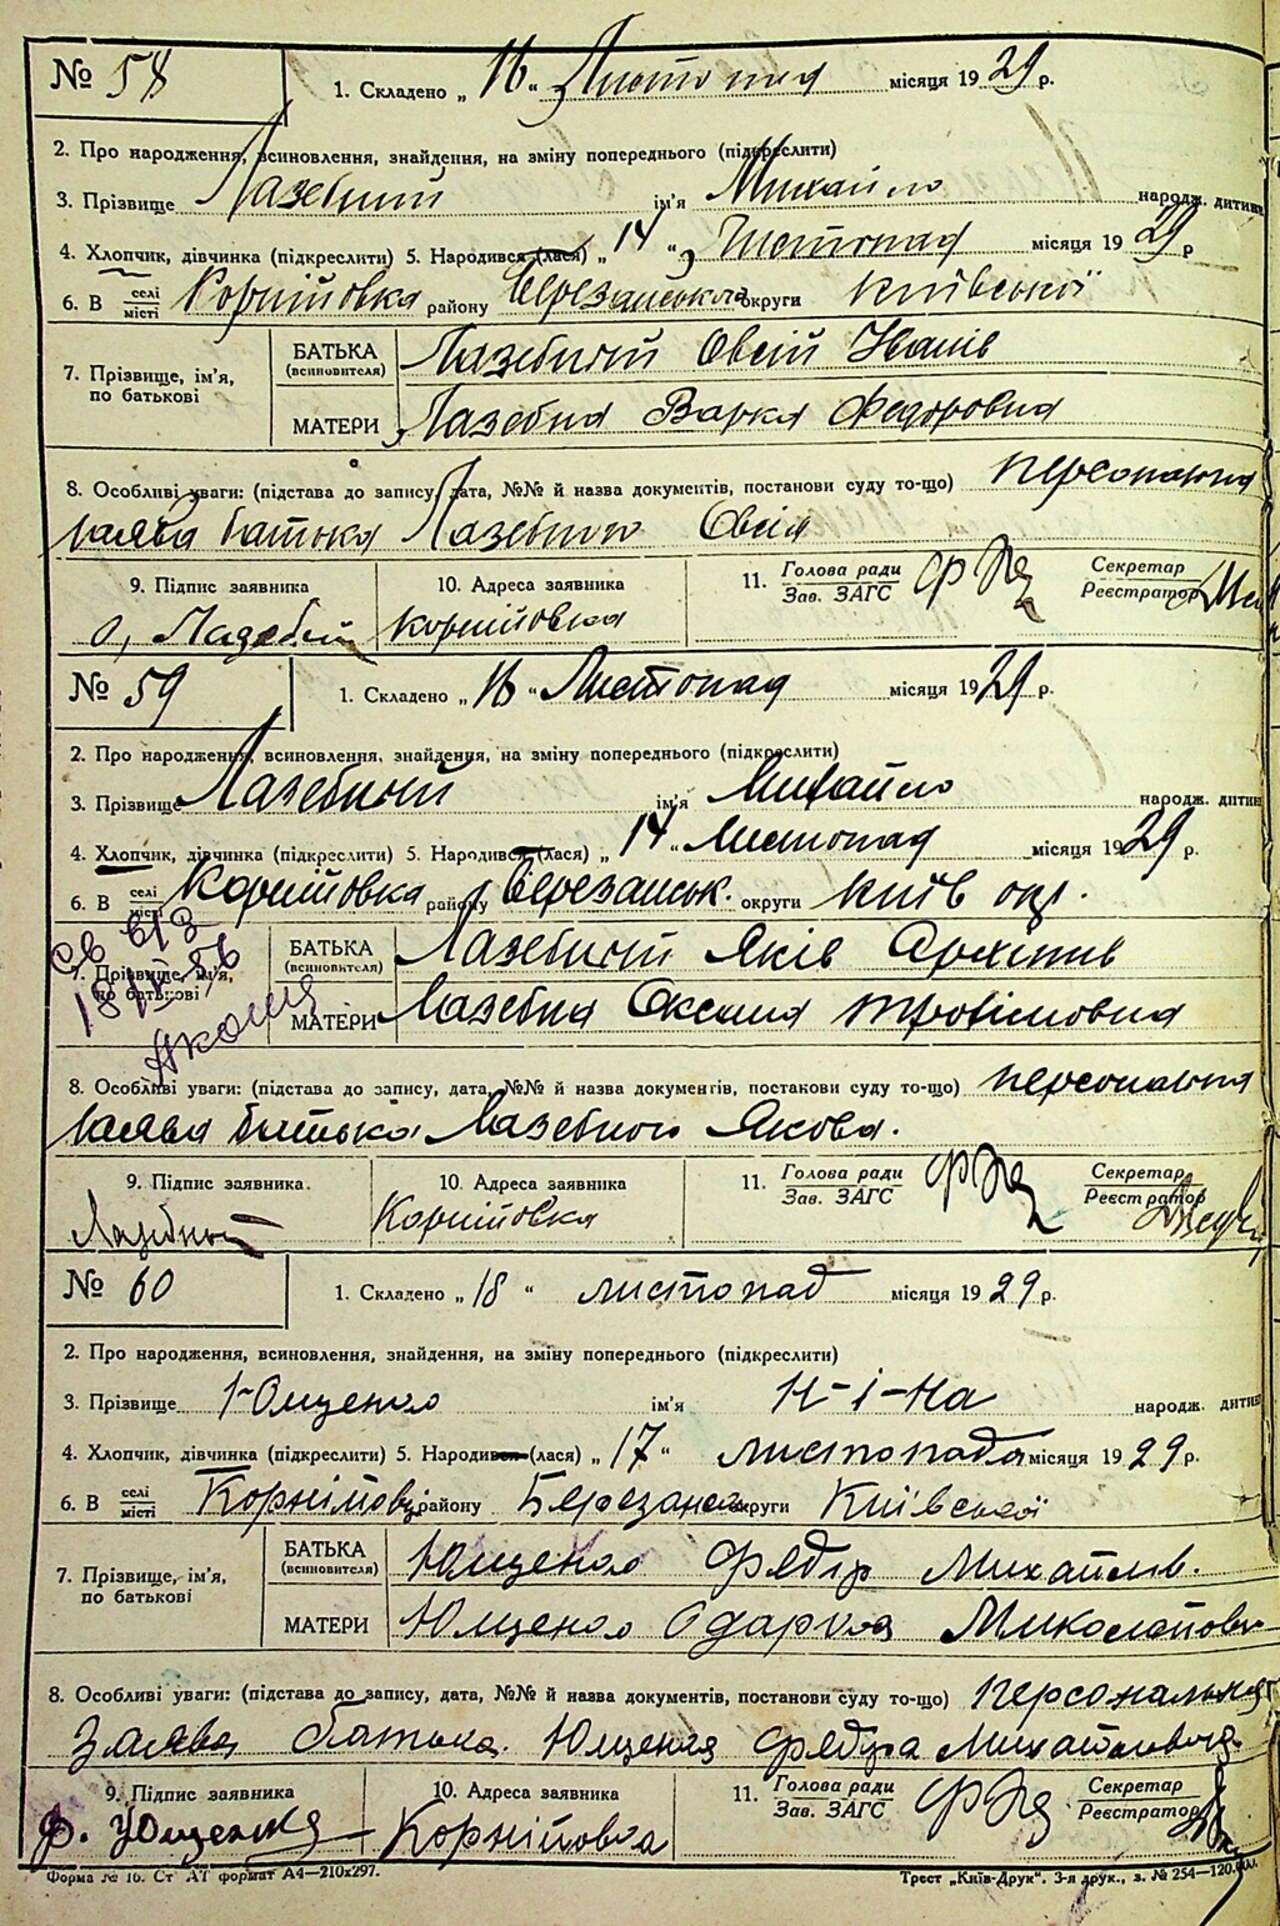 № 58 1. Складено „ 16 “ Листопад місяця 19 29 р.
2. Про народження, всиновлення, знайдення, на зміну попереднього (підкреслити)
3. Прізвище Лазебний ім'я Михайло народж. дитини
4. Хлопчик, дівчинка (підкреслити) 5. Народився (лася) „ 14 “ Листопад місяця 19 29 р
6. В селі місті Корніївка району Березанського округи Київської
7. Прізвище, ім'я, по батькові БАТЬКА (всиновителя) Лазебний Овсій Іванів
МАТЕРИ Лазебна Варка Федоровна
8. Особливі уваги: (підстава до запису, дата, №№ й назва документів, постанови суду то-що) персональна
заява батька Лазебного Овсія
9. Підпис заявника 10. Адреса заявника 11. Голова ради Зав. ЗАГС Секретар Реєстратор
О. Лазебний Корніївка
№ 59 1. Складено „ 16 “ Листопад місяця 19 29 р.
2. Про народження, всиновлення, знайдення, на зміну попереднього (підкреслити)
3. Прізвище Лазебний ім'я Михайло народж. дитини
4. Хлопчик, дівчинка (підкреслити) 5. Народився (лася) „ 14 “ Листопад місяця 19 29 р.
6. В селі місті Корніївка району Березанськ. округи Київ окр.
7. Прізвище, ім'я, по батькові БАТЬКА (всиновителя) Лазебний Яків Архипів
МАТЕРИ Лазебна Оксана Трофімовна
8. Особливі уваги: (підстава до запису, дата, №№ й назва документів, постакови суду то-що) персональна
заява батька Лазебного Якова.
9. Підпис заявника. 10. Адреса заявника 11. Голова ради Зав. ЗАГС Секретар Реєстратор
Лазебний Корніївка
№ 60 1. Складено „ 18 “ листопад місяця 19 29 р.
2. Про народження, всиновлення, знайдення, на зміну попереднього (підкреслити)
3. Прізвище Ющенко ім'я Н-і-на народж. дитини
4. Хлопчик, дівчинка (підкреслити) 5. Народився (лася) „ 17 “ листопада місяця 19 29 р.
6. В селі місті Корніївці району Березансь округи Київської
7. Прізвище, ім'я, по батькові БАТЬКА (всиновителя) Ющенко Федір Михайлів.
МАТЕРИ Ющенко Одарка Миколаївн
8. Особливі уваги: (підстава до запису, дата, №№ й назва документів, постанови суду то-що) персональна
заява батька. Ющенка Федора Михайловича.
9. Підпис заявника 10. Адреса заявника 11. Голова ради Зав. ЗАГС Секретар Реєстратор
Ф. Ющенка Корніївка
Форма № 16. Ст АТ формат А4—210x297. Трест „Київ-Друк". 3-я друк., з. № 254—120.000.